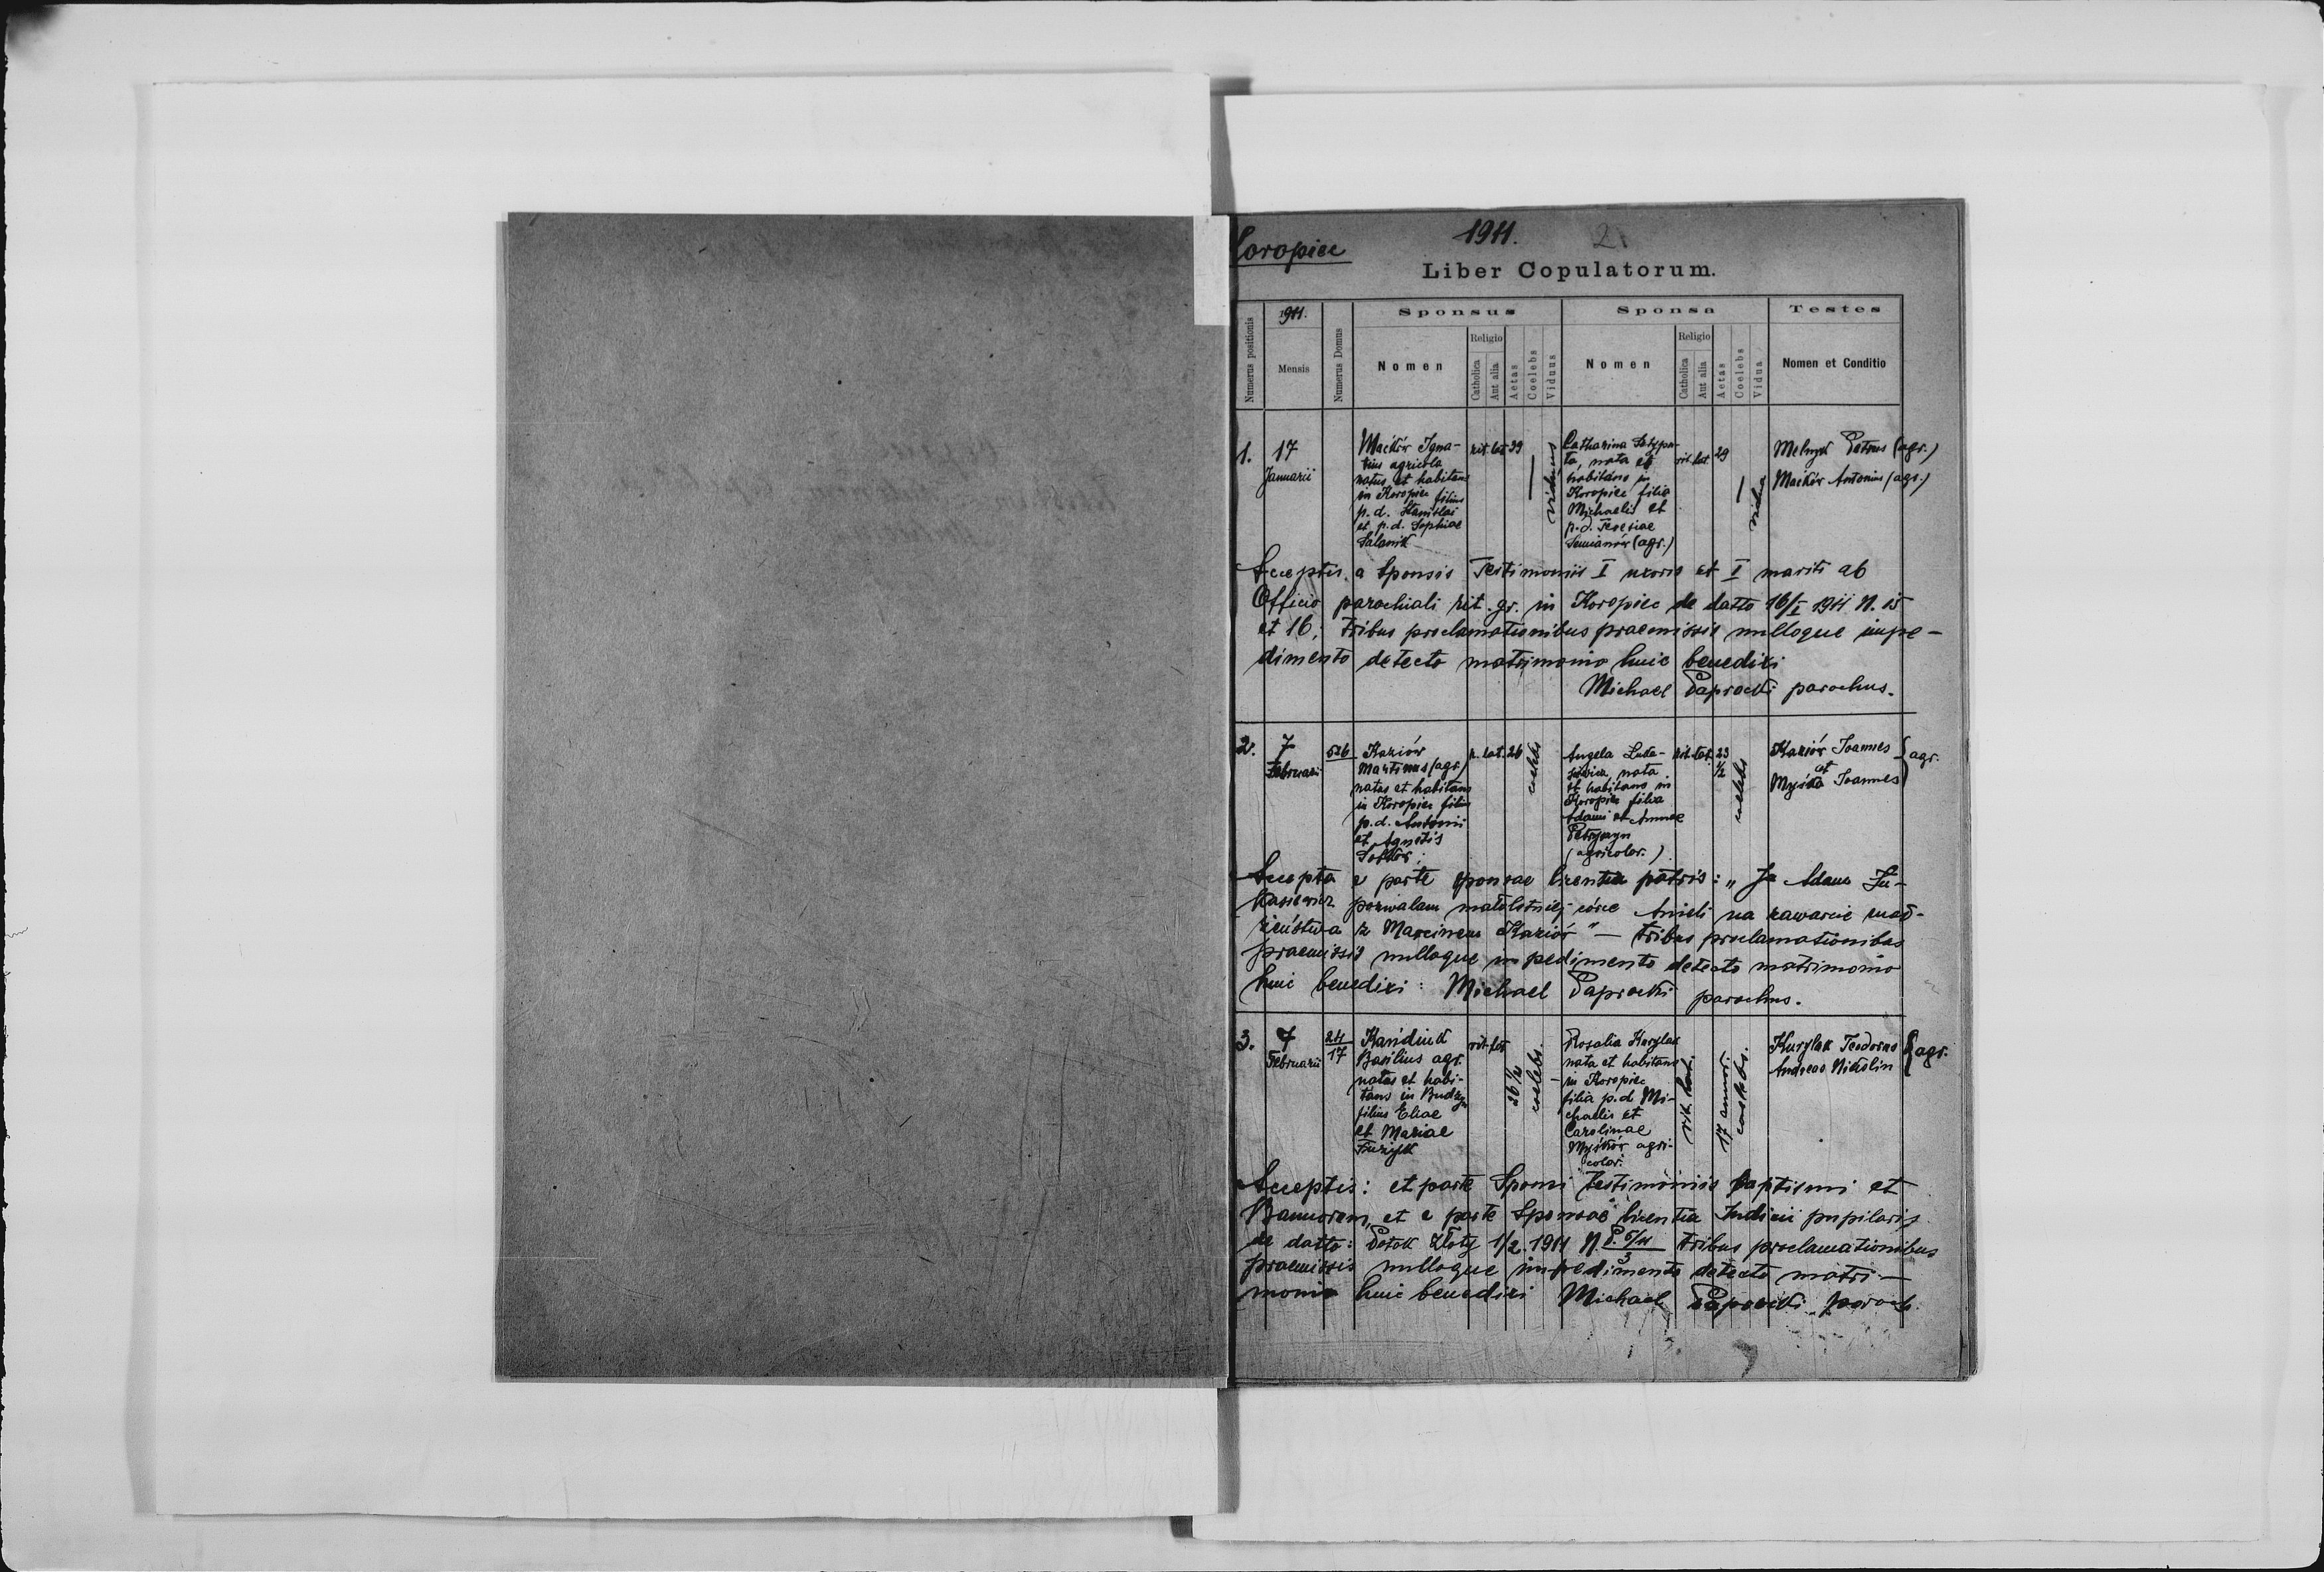 1911. 2.
Koropiec
Liber Copulatorum.
Numerus positionis
1911.
Mensis
Numerus Domus
Sponsus
Nomen
Religio
Catholica
Aut alia
Aetas
Coelebs
Viduus
Sponsa
Nomen
Religio
Catholica
Aut alia
Aetas
Coelebs
Vidua
Testes
Nomen et Conditio
1.
17
Januarii
Maćków Igna-
tius agricola
natus et habitans
in Koropiec filius
p.d. Stanislai
et p.d. Sophiae
Salamik
rit. lat. 39
viduus
Catharina
ta, nata et
habitans in
Koropiec filia
Michaelis et
p.d. Teresiae
(agr.)
rit. lat. 29
vidua
Melnyk Petrus (agr.)
Maćków Antonius (agr.)
Acceptis a Sponsis Testimoniis I uxoris et I mariti ab
Officio parochiali rit. gr. in Koropiec de datto 16/I 1911 N. 15
et 16; tribus proclamationibus praemissis nulloque impe-
dimento detecto matrimonio huic benedixi
Michael Paprocki parochus.
2.
7
Februarii
526
Kaziów
Martinus (agr.)
natus et habitans
in Koropiec filius
p.d. Antonii
et Agnetis
r. lat. 26
coelebs
Angela Luka-
siewicz nata
et habitans in
Koropiec filia
Adami et Annae
Petryszyn
(agricolar.)
rit. lat. 23
1/2
coelebs
Kaziów Joannes
et
Joannes
agr.
Accepta e parte sponsae licentia patris: „Ja Adam Łu-
kasiewicz pozwalam małoletniej córce Anieli na zawarcie mał-
żeństwa z Marcinem Kaziów" — tribus proclamationibus
praemissis nulloque impedimento detecto matrimonio
huic benedixi: Michael Paprocki parochus.
3.
7
Februarii
24
17
Kandiuk
Basilius agr.
natus et habi-
tans in Budzyn
filius Eliae
et Mariae
rit. lat.
26 1/2
coelebs.
Rosalia Kurylak
nata et habitans
in Koropiec
filia p.d. Mi-
chaelis et
Carolinae
agri-
color.
rit. lat.
17 annor.
coelebs.
Kurylak Teodorus
Andreas Nikolin
agr.
Acceptis: et parte Sponsi testimoniis baptismi et
Bannorum, et e parte Sponsae licentia Judicii pupilaris
de datto: Potok Złoty 1/2. 1911 N. P. 5/11 tribus proclamationibus
3
praemissis nulloque impedimento detecto matri-
monio huic benedixi Michael Paprocki paroch.